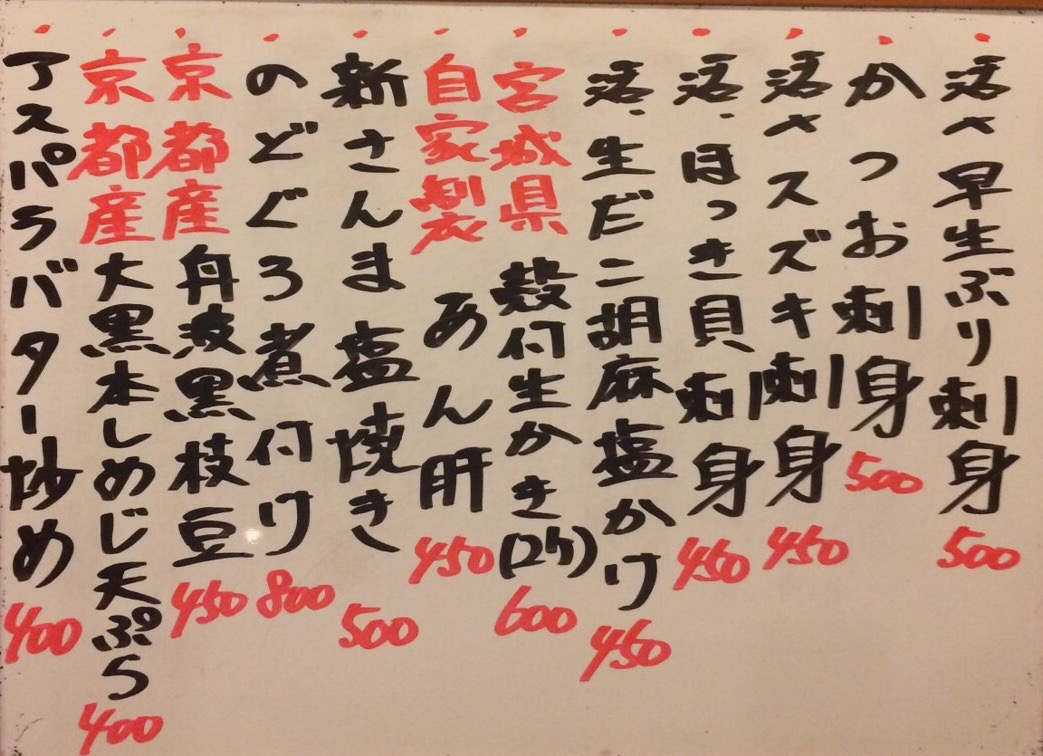 活〆早生ぶり刺身500
かつお刺身500
活〆スズキ刺身450
活・ほっき貝刺身450
活・生だこ胡麻塩かけ450
宮城県殻付生かき(2ケ)600
自家製あん肝450
新さんま塩焼き500
のどぐろ煮付け800
京都産舟波黒枝豆450
京都産大黒本しめじ天ぷら400
アスパラバター炒め400